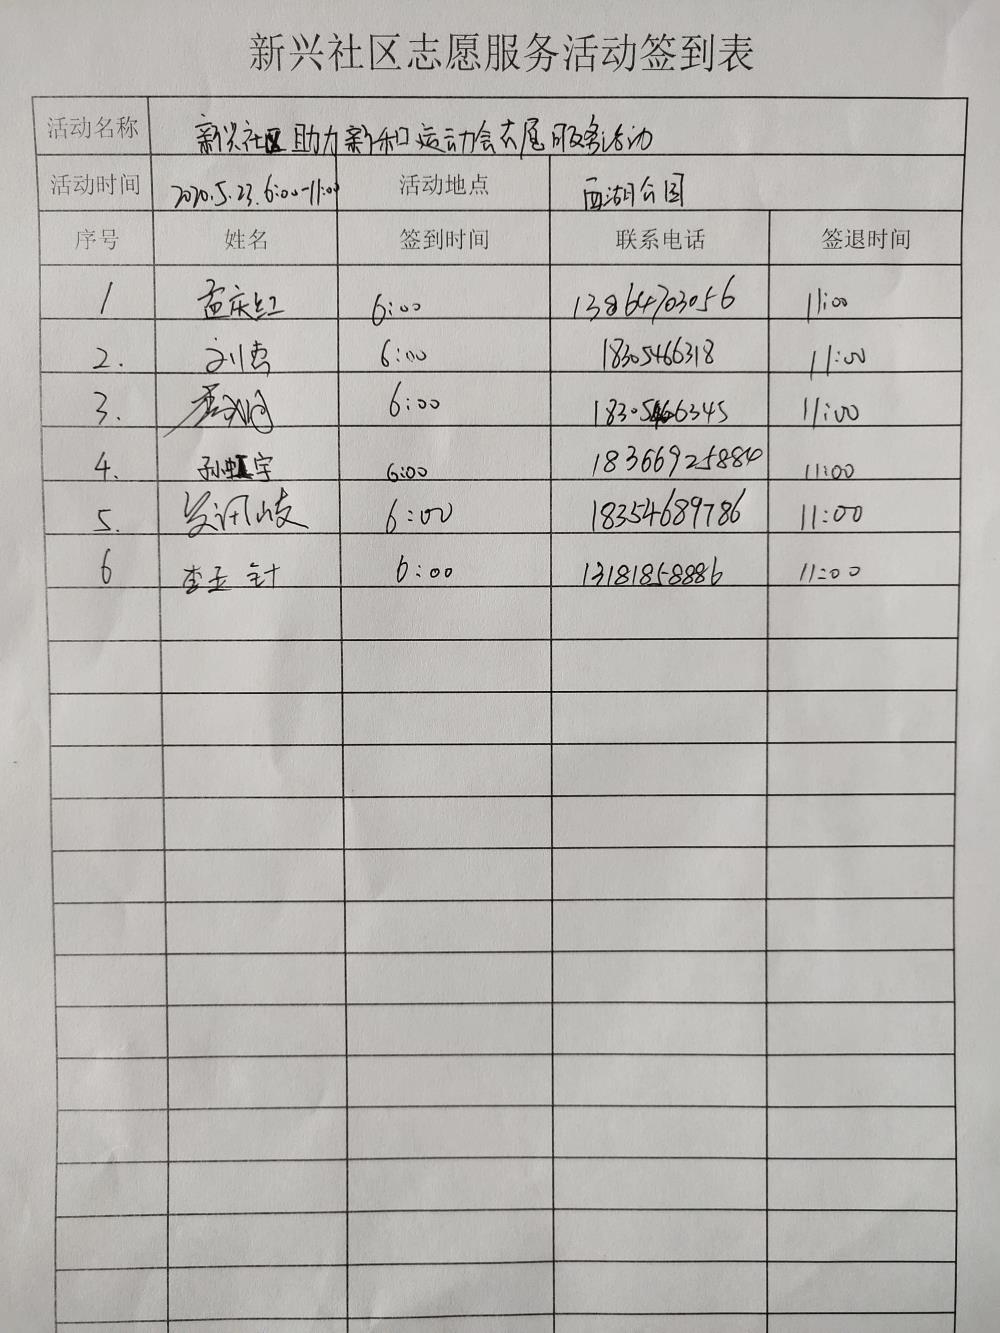 新兴社区志愿服务活动签到表
活动名称 新兴社区助力新和运动会志愿服务活动
活动时间 2020.5.23.6:00-11:00 活动地点 西湖公园
序号 姓名 签到时间 联系电话 签退时间
1 孟庆红 6:00 13864703056 11:00
2. 刘杰 6:00 18305466318 11:00
3. 6:00 18305466345 11:00
4. 孙虹宇 6:00 18366925884 11:00
5. 6:00 18354689786 11:00
6 李玉针 6:00 13181858886 11:00